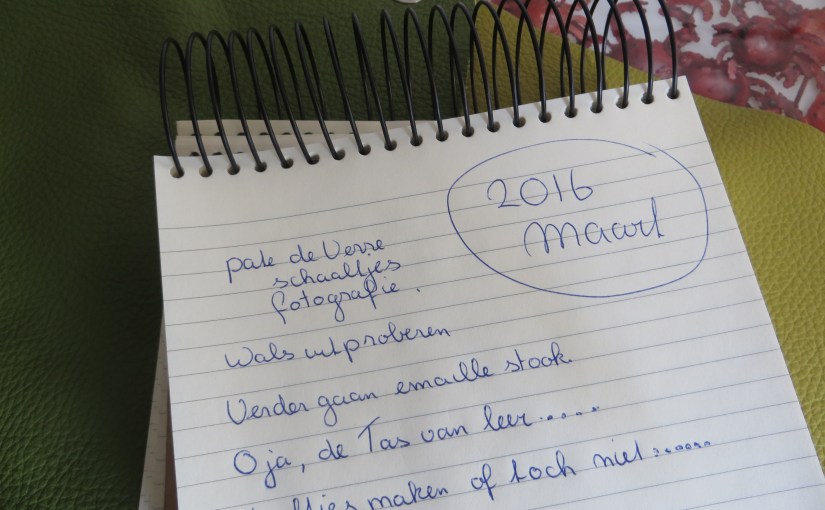 2016
Maart
pate de Verre
schaaltjes
fotografie.
Wals uitproberen
Verder gaan emaille stook
Oja, de Tas van leer.....
maken of toch niet.......